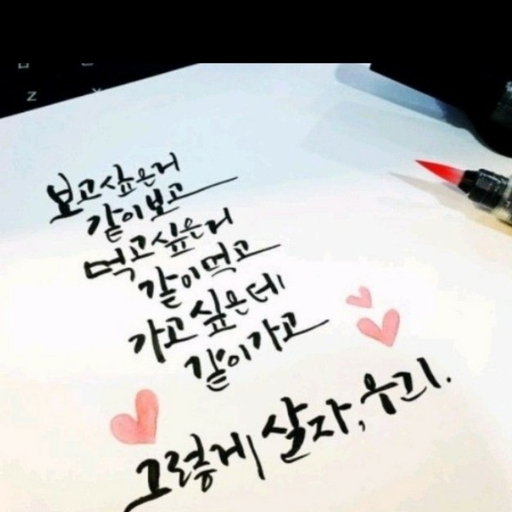 Z
보고싶은거
같이보고
먹고싶은거
같이먹고
가고싶은데
같이가고
그렇게 살자, 우리.